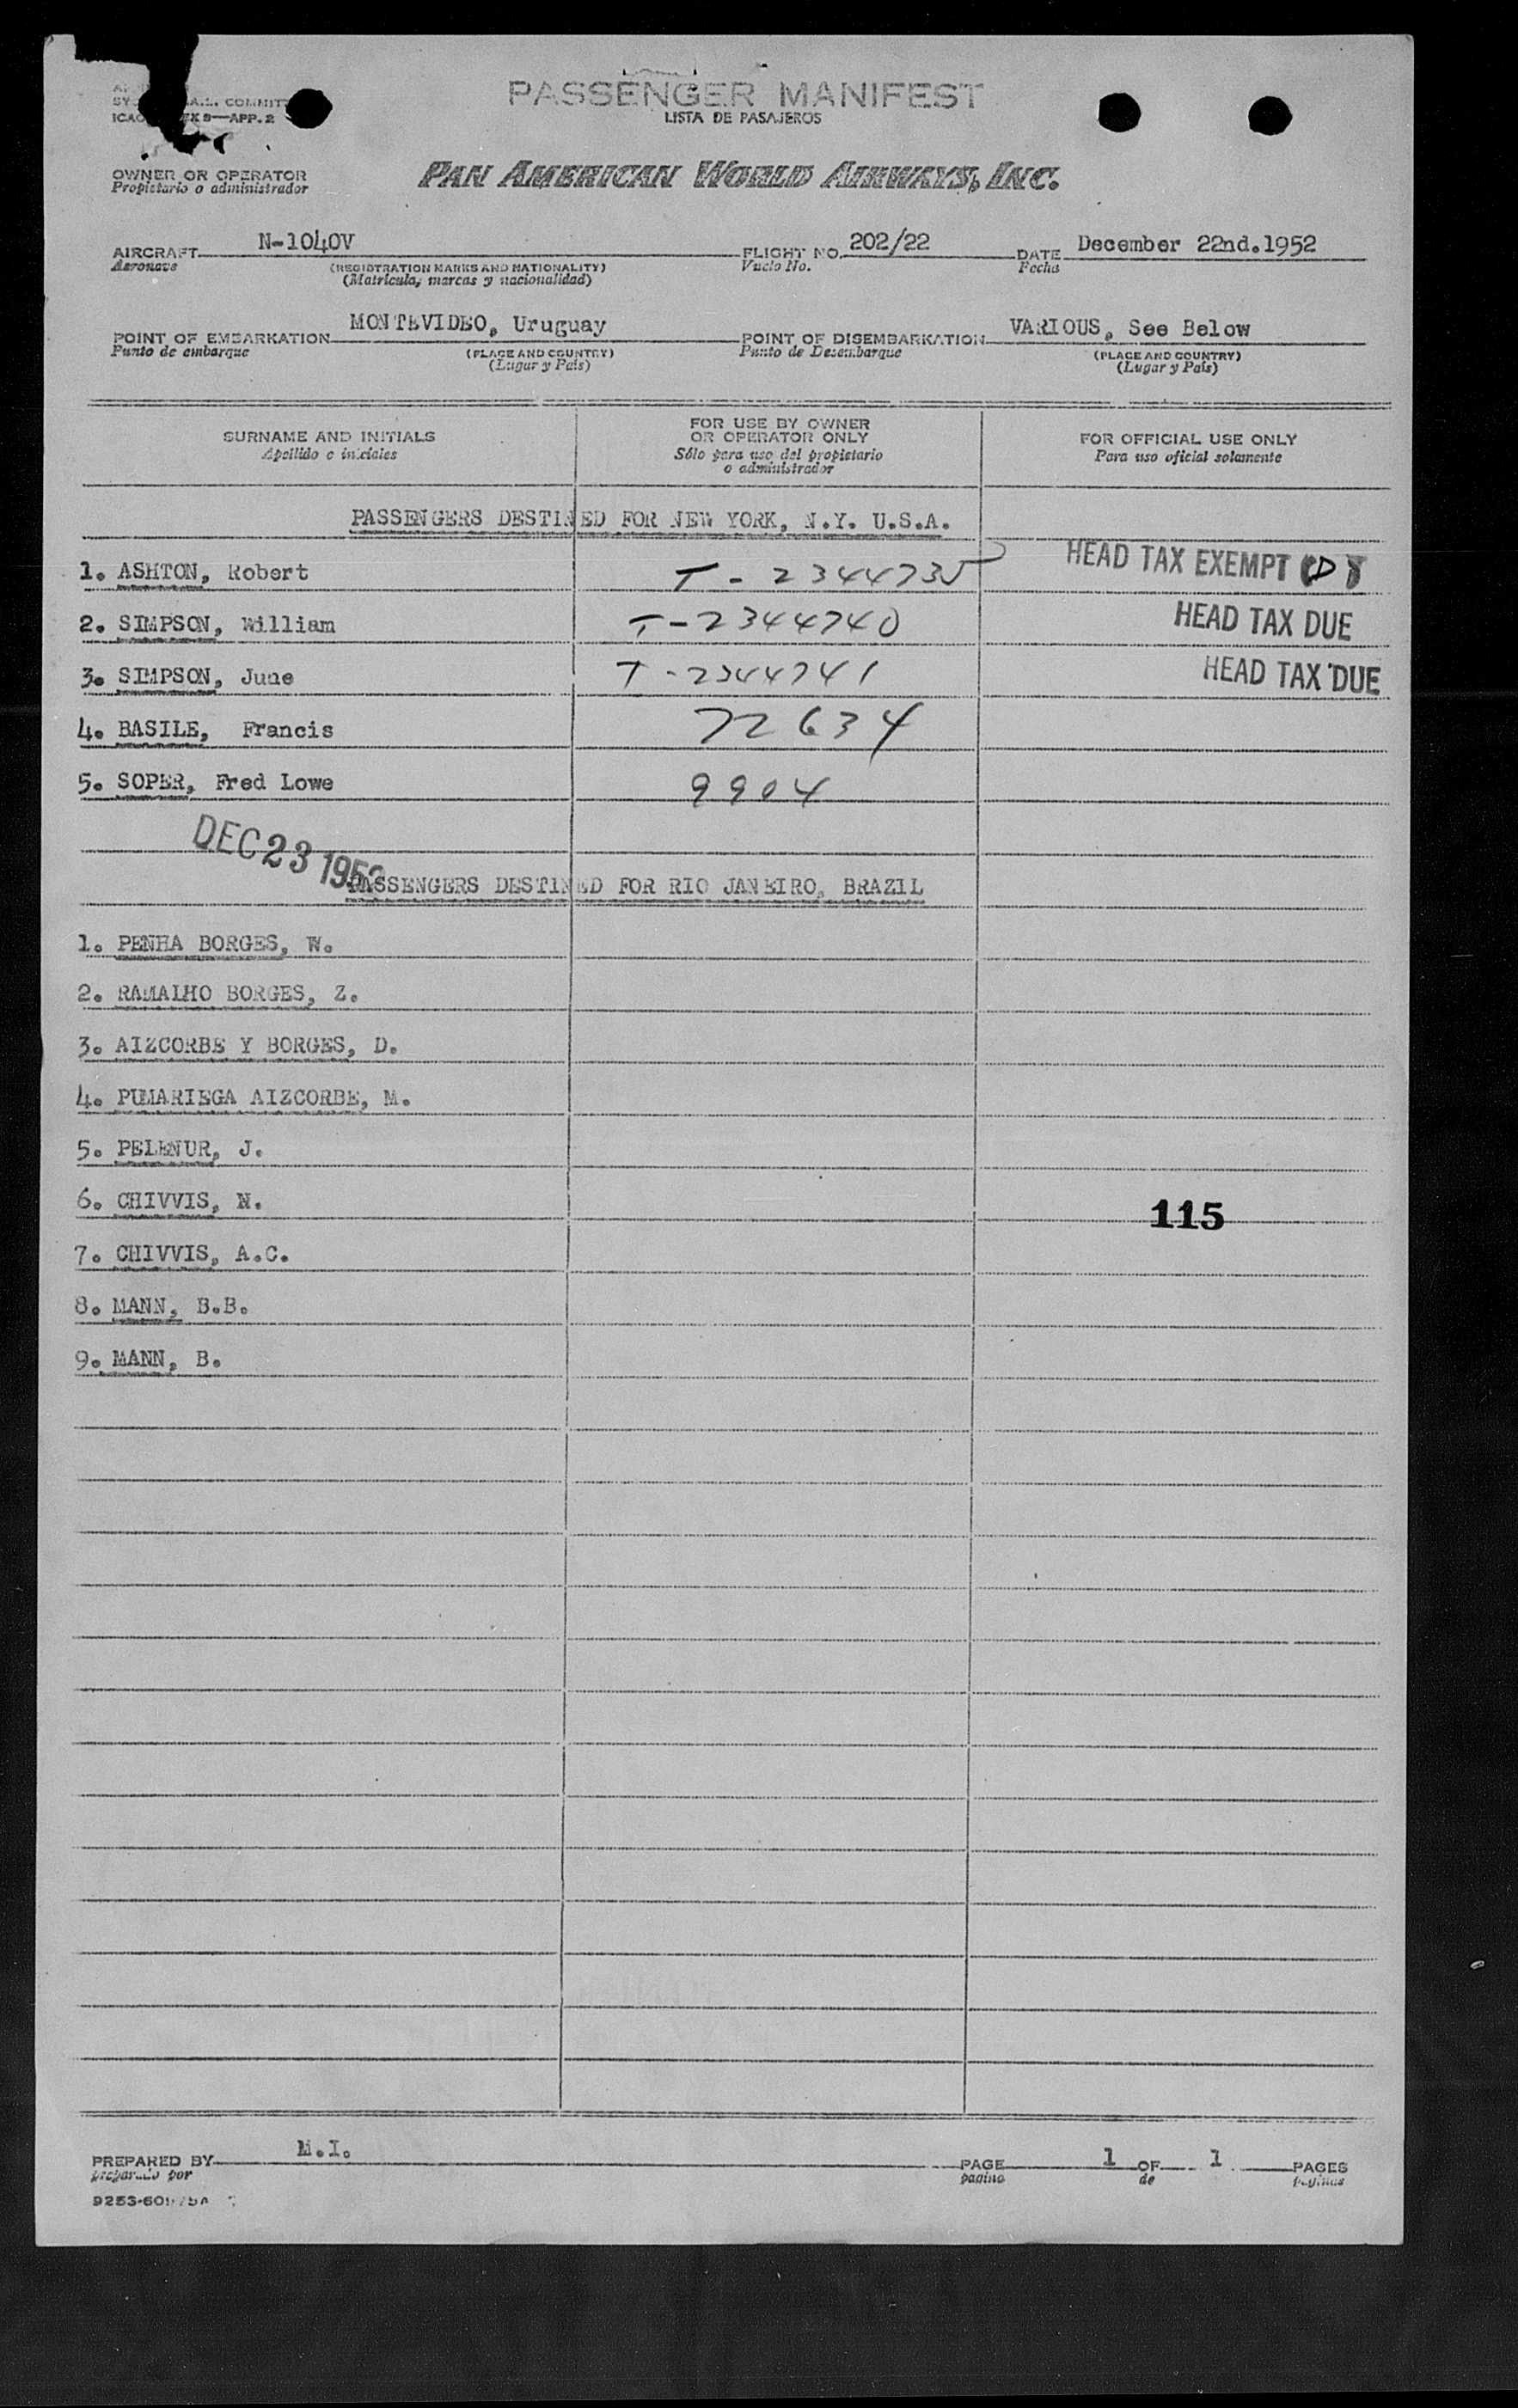 PASSENGER MANIFEST
LISTA DE PASAJEROS
A.L. COMMITT
ICAO X 9—APP. 2
OWNER OR OPERATOR
Propietario o administrador
PAN AMERICAN WORLD AIRWAYS, INC.
AIRCRAFT N-1040V FLIGHT NO. 202/22 DATE December 22nd.1952
Aeronave (REGISTRATION MARKS AND NATIONALITY) Vuelo No. Fecha
(Matricula, marcas y nacionalidad)
POINT OF EMBARKATION MONTEVIDEO, Uruguay POINT OF DISEMBARKATION VARIOUS, See Below
Punto de embarque (PLACE AND COUNTRY) Punto de Desembarque (PLACE AND COUNTRY)
(Lugar y País) (Lugar y País)
SURNAME AND INITIALS FOR USE BY OWNER OR OPERATOR ONLY FOR OFFICIAL USE ONLY
Apellido e iniciales Sólo para uso del propietario o administrador Para uso oficial solamente
PASSENGERS DESTINED FOR NEW YORK, N.Y. U.S.A.
1. ASHTON, Robert T-2344735 HEAD TAX EXEMPT
2. SIMPSON, William T-2344740 HEAD TAX DUE
3. SIMPSON, June T-2344741 HEAD TAX DUE
4. BASILE, Francis 72634
5. SOPER, Fred Lowe 9904
DEC 23 1952
PASSENGERS DESTINED FOR RIO JANEIRO, BRAZIL
1. PENHA BORGES, W.
2. RAMALHO BORGES, Z.
3. AIZCORBE Y BORGES, D.
4. PUMARIEGA AIZCORBE, M.
5. PELENUR, J.
6. CHIVVIS, N.
115
7. CHIVVIS, A.C.
8. MANN, B.B.
9. MANN, B.
PREPARED BY M.I. PAGE 1 OF 1 PAGES
preparado por pagina de paginas